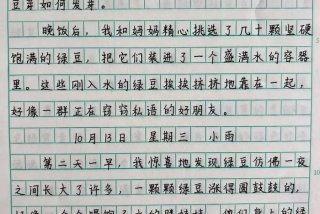 豆芽如何发芽。
晚饭后，我和妈妈精心挑选了几十颗坚硬
饱满的绿豆，把它们装进了一个盛满水的容器
里。这些刚入水的绿豆挨挨挤挤地靠在一起，
好像一群正在窃窃私语的好朋友。
10月13日 星期三 小雨
第二天一早，我惊喜地发现绿豆仿佛一夜
之间长大了许多，一颗颗绿豆涨得圆鼓鼓的，